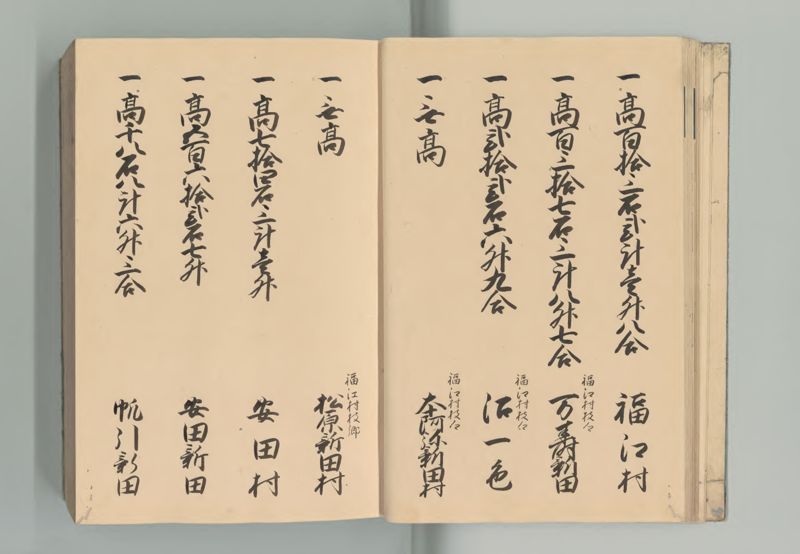 一高百拾三石弐斗壱升八合
福江村
一高百三拾七石三斗八升七合
福江村枝郷
万寿新田
一高弐拾弐石六升九合
福江村枝郷
沼一色
一無高
福江村枝郷
新田村
一無高
福江村枝郷
松原新田村
一高七拾四石三斗壱升
安田村
一高六百六拾弐石七升
安田新田
一高千八石八斗六升三合
帆引新田